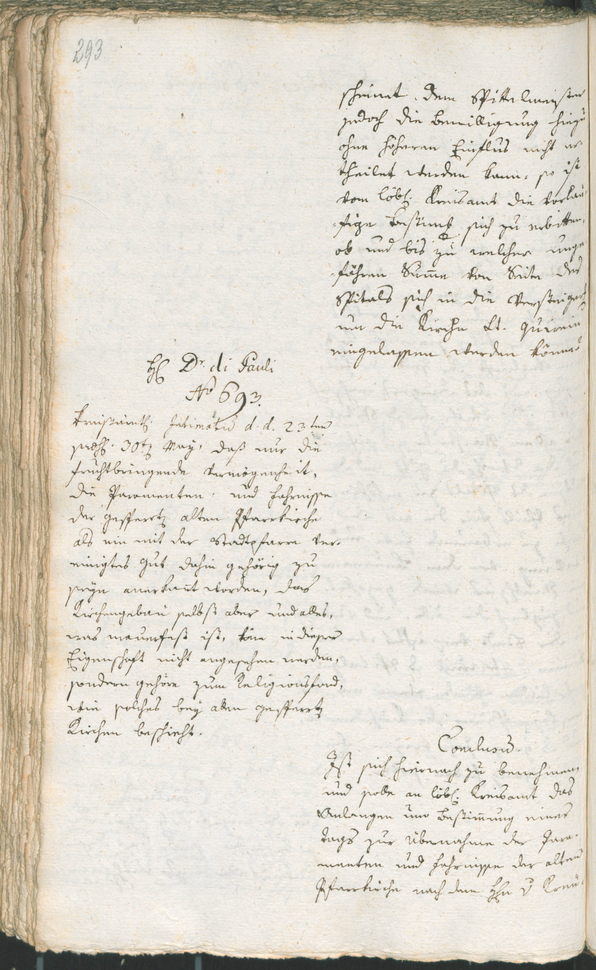 293
scheinet. Dem Spittelmeister
jedoch die Bewilligung hiezu
ohne höheren Einflus nicht er-
theilet werden kann, so ist
vom löbl. Kreisamt die vorläu-
fige Bestimmung sich zu erbitten,
ob und bis zu welcher unge-
fähren Summe von Seite des
Spitals sich in die Versteigerung
um die Kirche St. Quirein
eingelassen werden könne.
H. Dr. di Pauli
No 693.
Kreisamtl. Intimation d. d. 23ten
30ten May, daß nur die
fruchtbringende Vermögenheit,
die Paramenten und Fahrnisse
der gesperrt alten Pfarrkirche
als ein mit der Stadtpfarre ver-
einigtes Gut dahin gehörig zu
seyn anerkannt werden, das
Kirchengebäu selbst aber und alles,
was mauerfest ist, könne in dieser
Eigenschaft nicht angesehen werden,
sondern gehöre zum Religionsfond,
wie solches bey allen gesperrt
Kirchen beschieht.
Conclusum.
Ist sich hiernach zu benehmen,
und seye an löbl. Kreisamt das
Anlangen um Bestimmung eines
Tags zur Übernahme der Para-
menten und Fahrnisse der alten
Pfarrkirche nach dem Hrn v